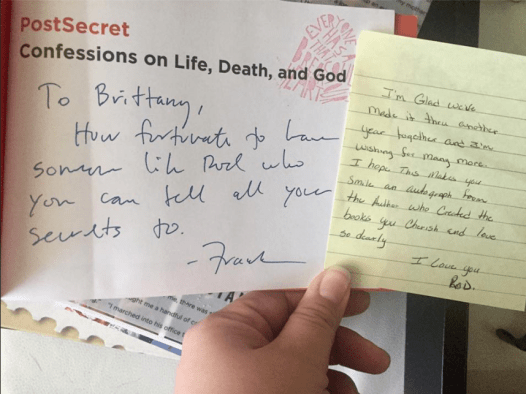 PostSecret
Confessions on Life, Death, and God
EVERYONE
HAS A
To Brittany,
How fortunate to have
someone like Rod who
you can tell all your
secrets to.
- Frank
I'm Glad we've
made it thru another
year together and I'm
wishing for many more.
I hope This makes you
smile an autograph from
the Author who Created the
books you Cherish and love
so dearly
I Love you
ROD.
me, there was
ght me a handful of
"I marched into his office